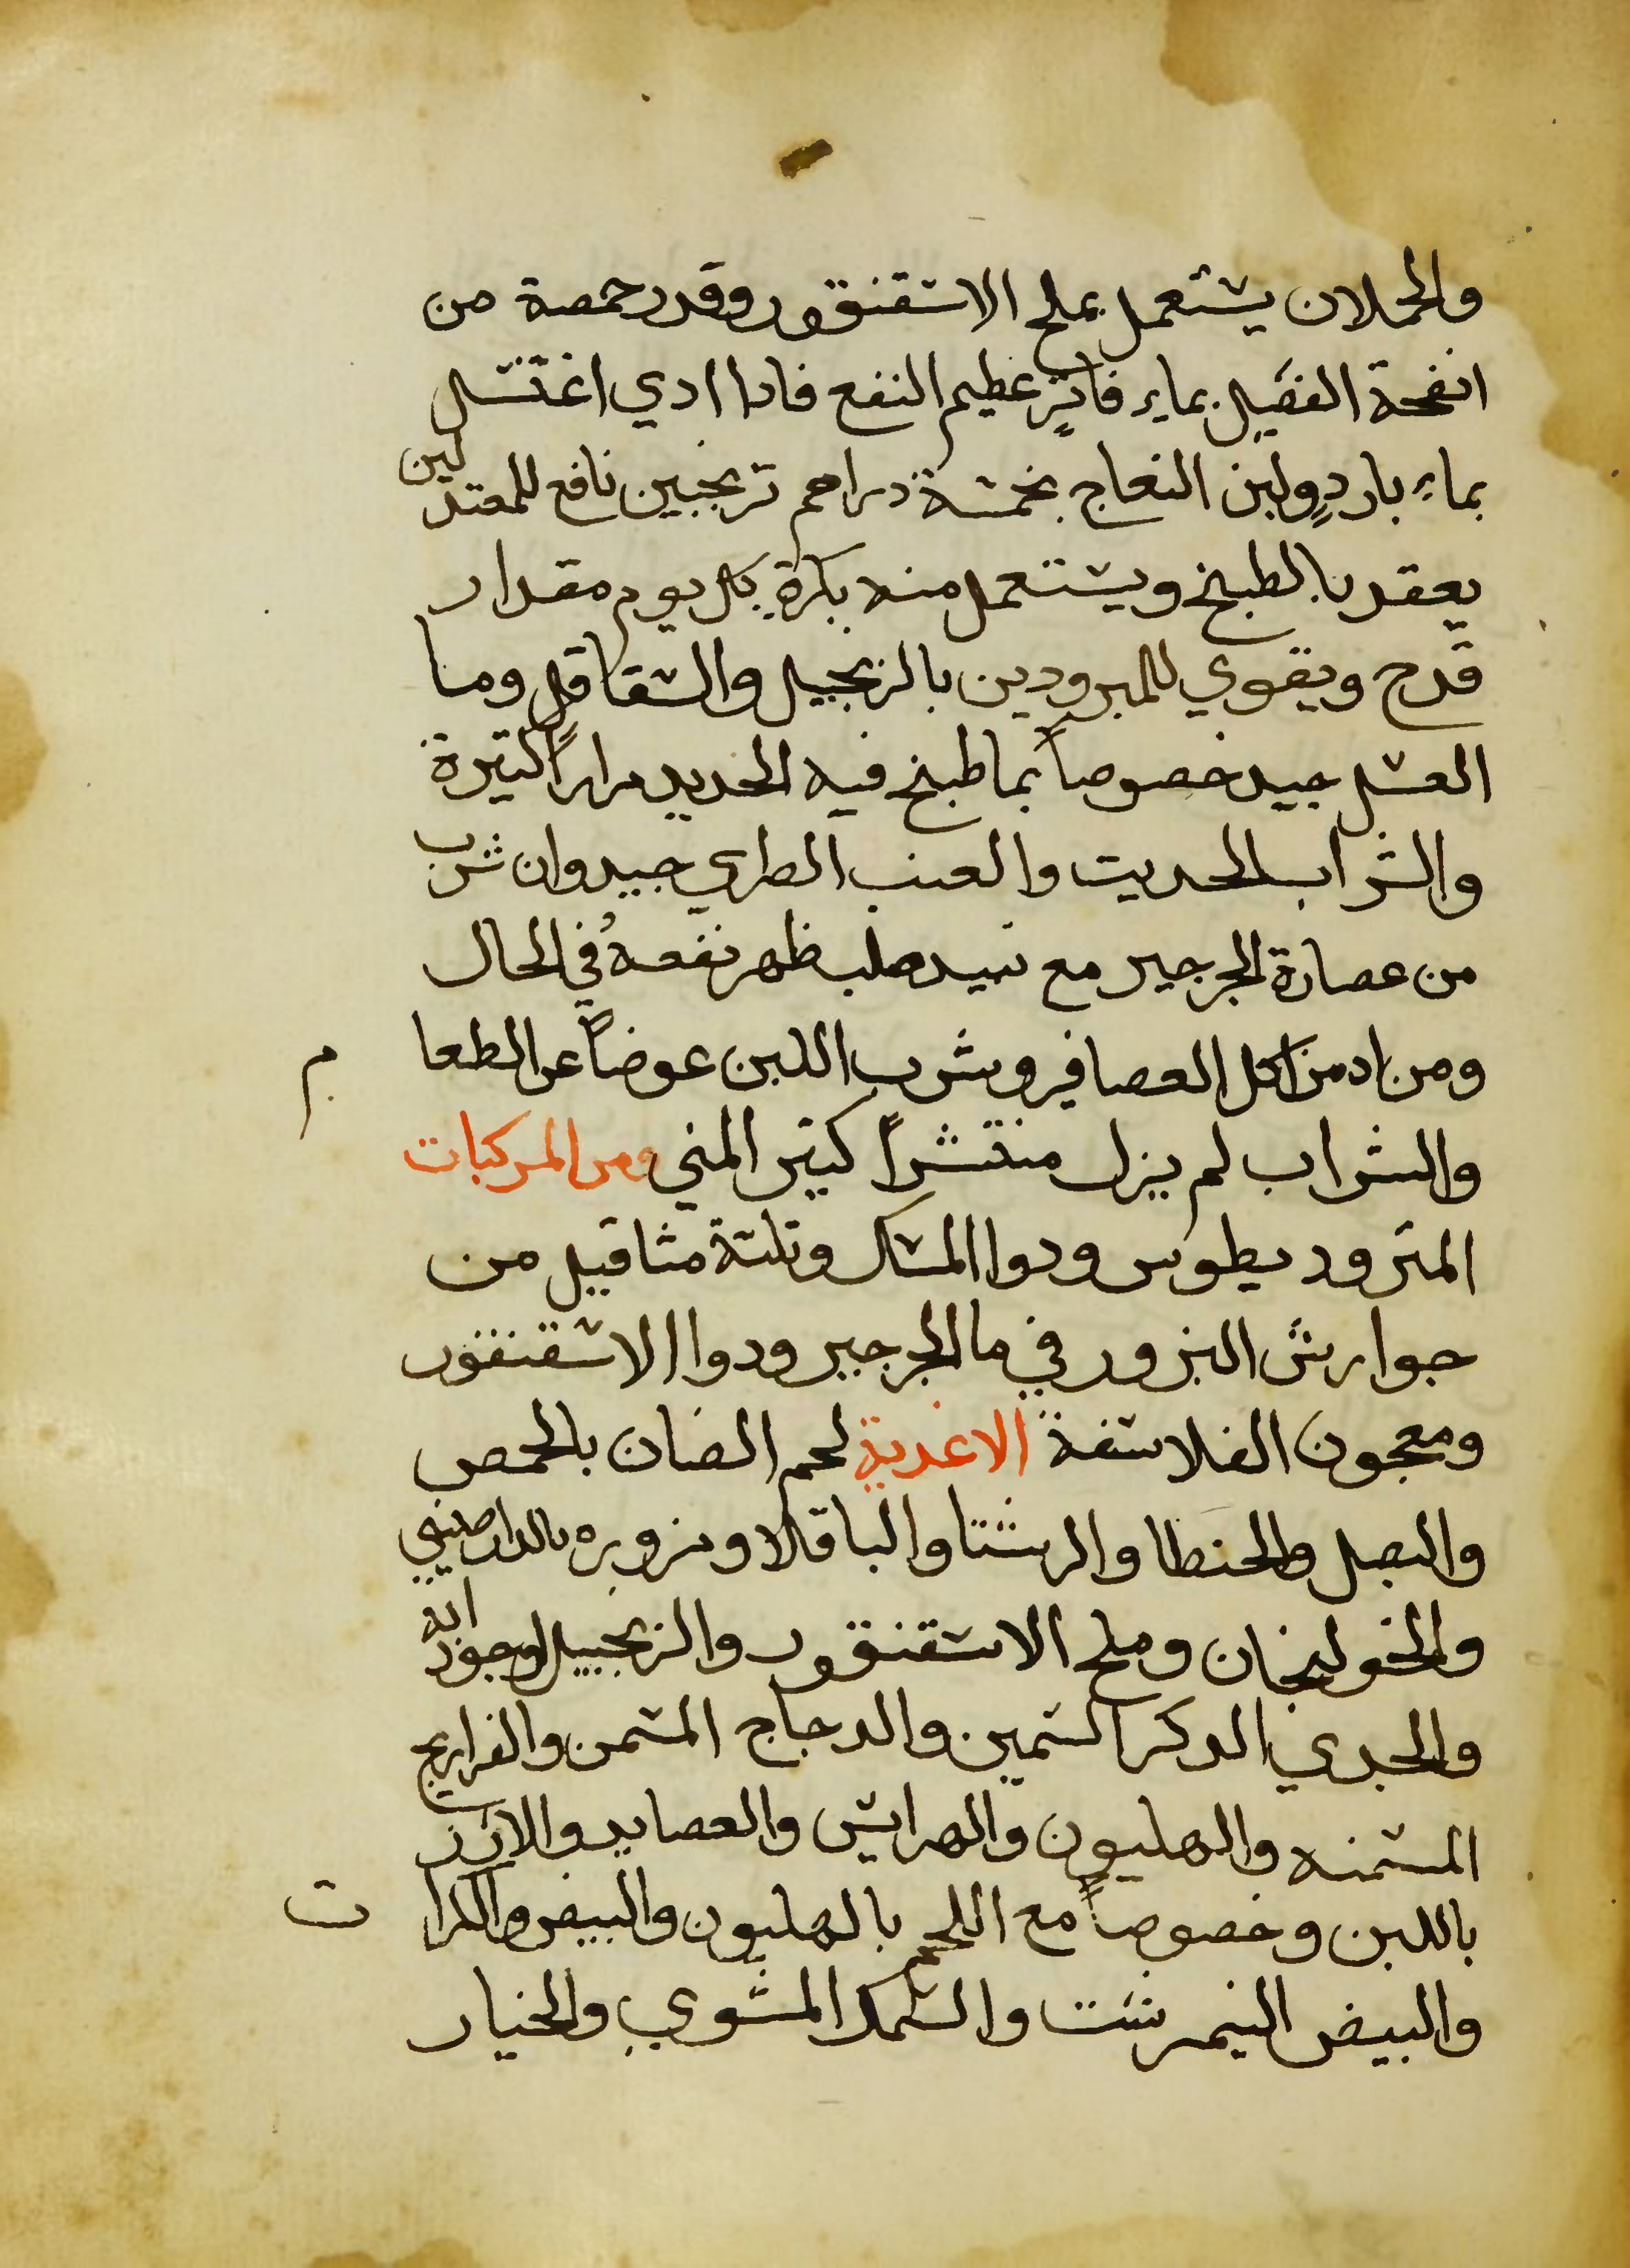 والحملان يستعمل بملح الاسقنقور وقدر حمصة من
انفحة الفصيل بماءٍ فاترٍ عظيم النفع فادا ادي اغتسل
بماءٍ باردٍ ولبن النعاج بخمسة دراهم ترنجبين نافع للمعتدلين
يعقد بالطبخ ويستعمل منه بكرةٍ كل يوم مقدار
قدح ويقوي للمبرودين بالزنجبيل والشقاقل وما
العسل جيد خصوصاً بما طبخ فيه الحديد مراراً كتيرة
والشراب الحديت والعنب الطري جيد وان شرب
من عصارة الجرجير مع نبيد صلب ظهر نفعهُ في الحال
ومن ادمن اكل العصافير وشرب اللبن عوضاً عن الطعام
والشراب لم يزل منتشراً كتير المني ومن المركبات
المترود يطوس ودوا المسك وتلتة مثاقيل من
جوارش البزور في ما الجرجير ودوا الاسقنقور
ومعجون الفلاسفة الاغدية لحم الضان بالحمص
والبصل والحنطا والرشتا والباقلا وبزوره بالدارصيني
والخولنجان وملح الاسقنقور والزنجبيل لوجودانه
والجدي الدكر السمين والدجاج المسمن والفراريج
المسمنه والهليون والهرايس والعصايد والارز
باللبن وخصوصاً مع اللحم بالهليون والبيض والكرات
والبيض النيمرشت والسمك المشوي والخيار